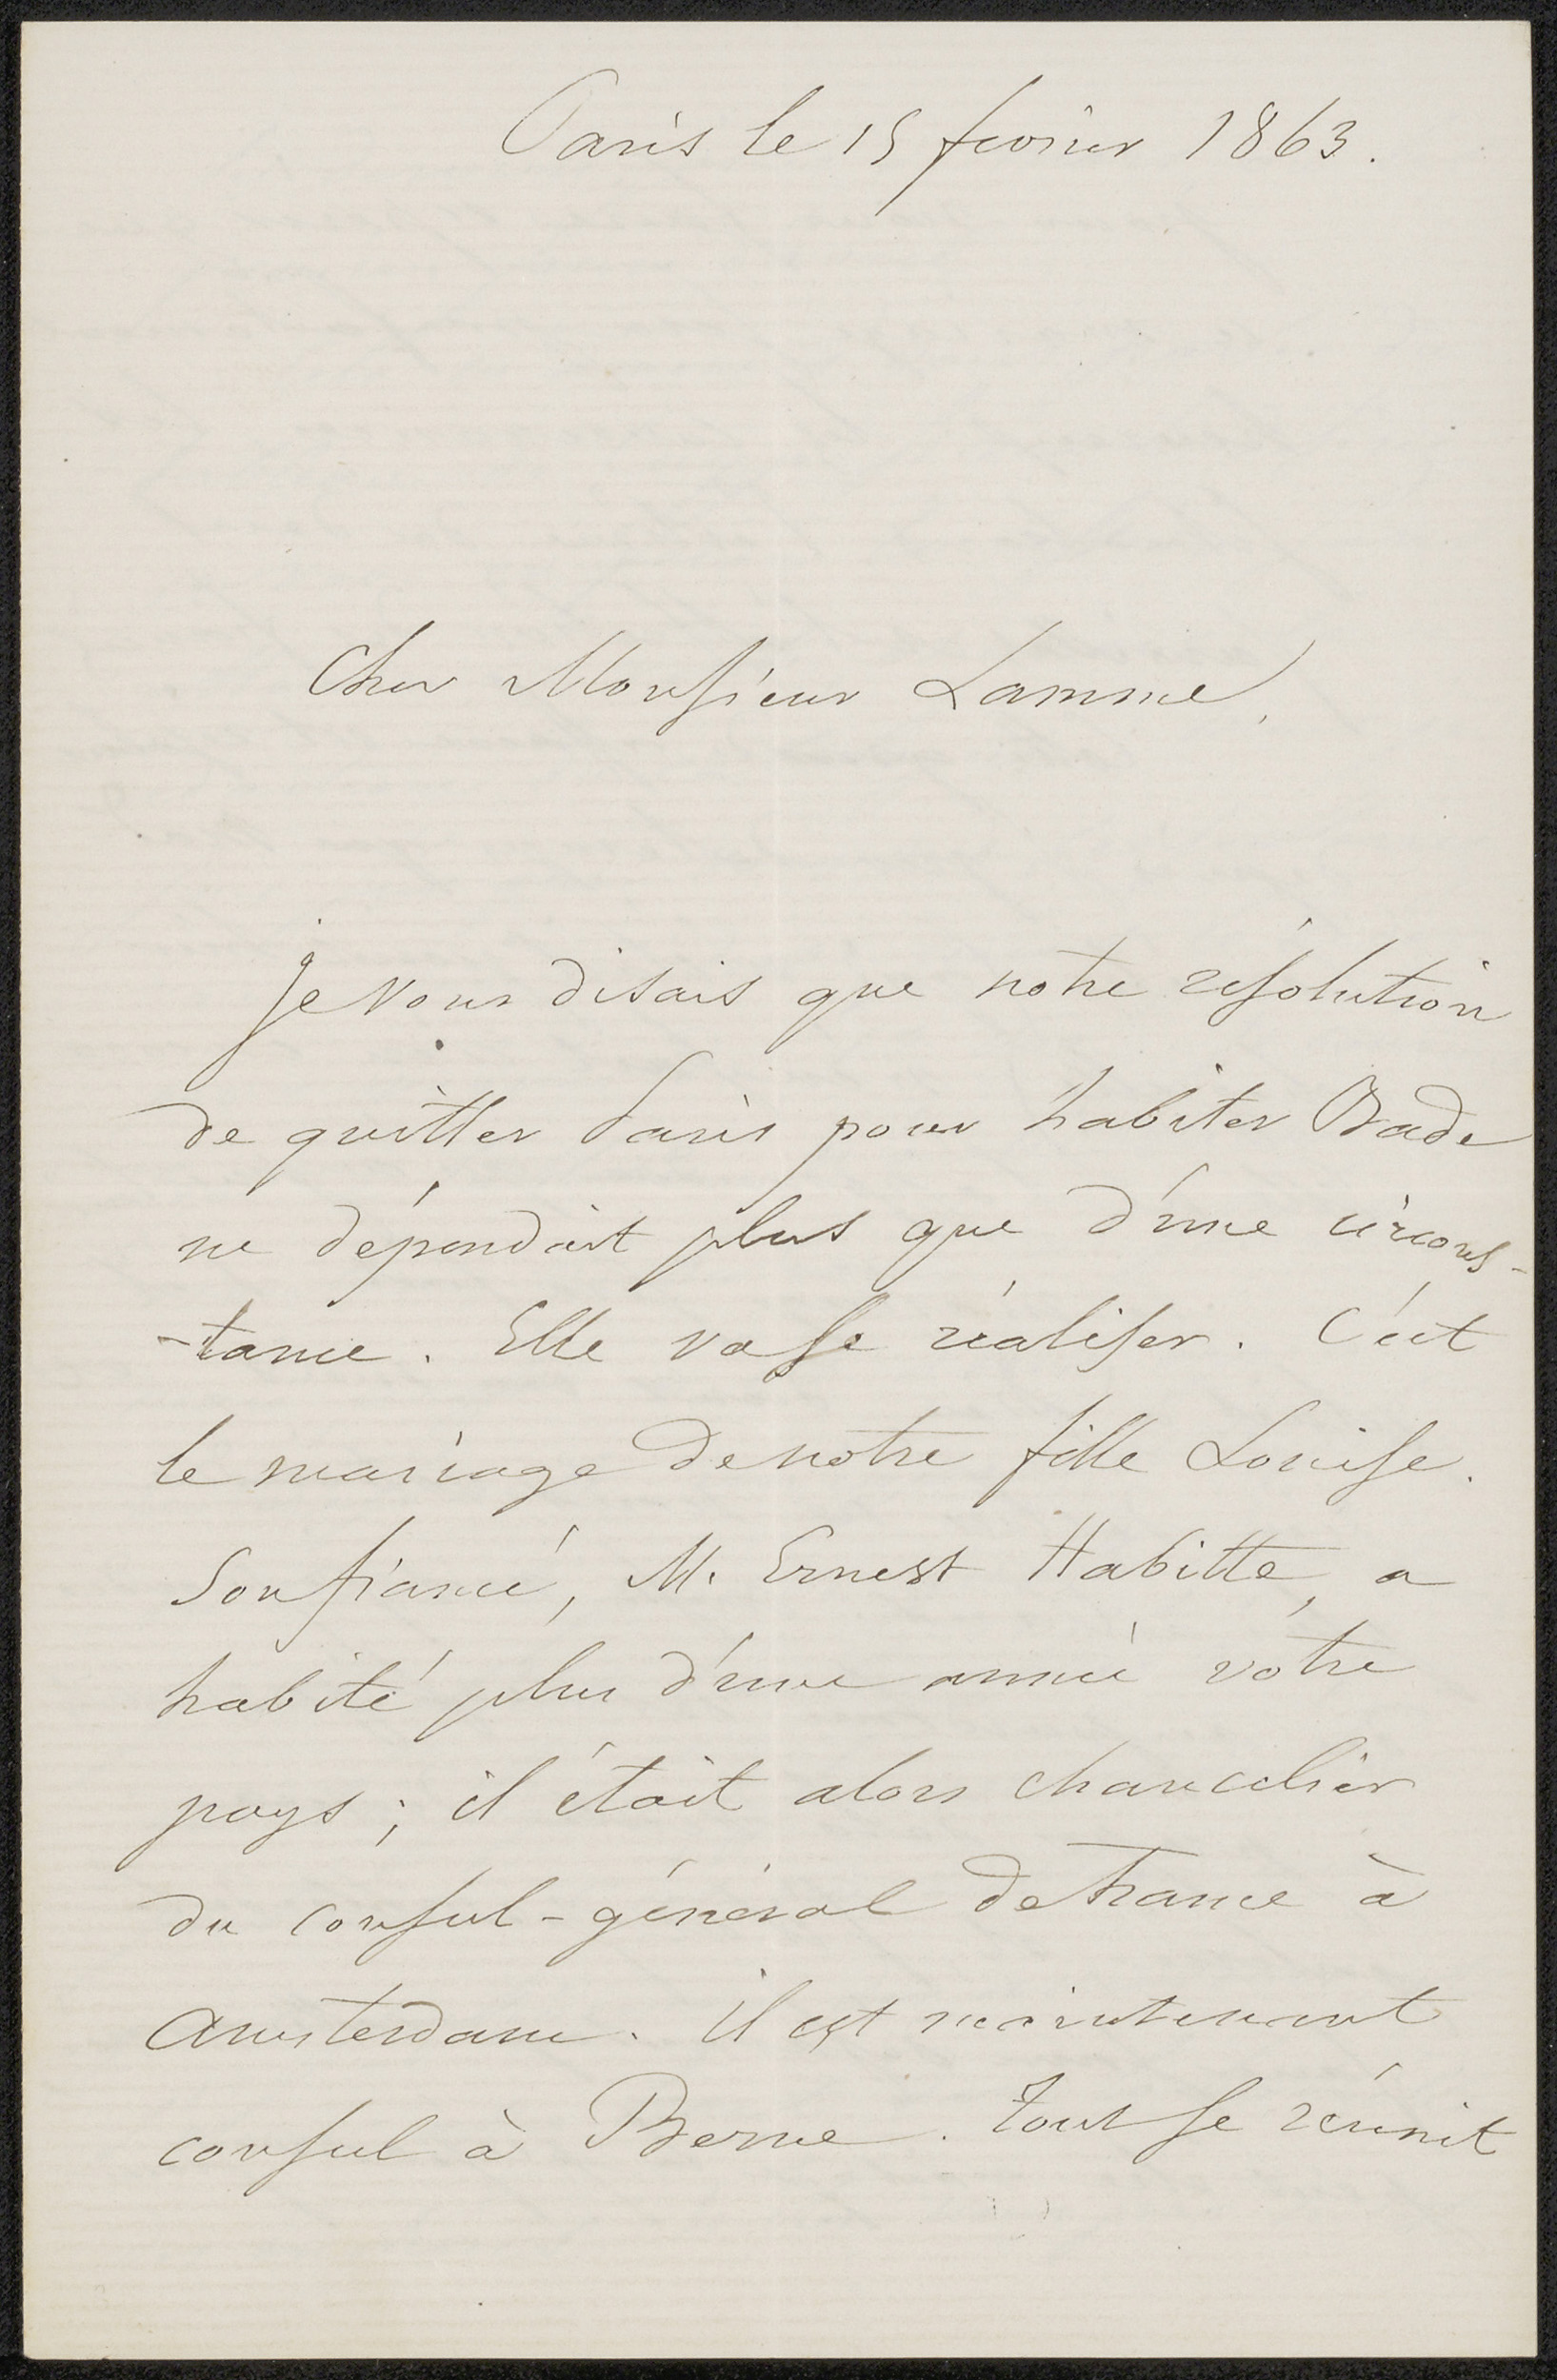 Paris le 15 fevrier 1863.
Cher Monsieur Lamme,
je vous disais que notre résolution
de quitter Paris pour habiter Bade
ne dépendait plus que d'une circons-
-tance. Elle va se réaliser. C'est
le mariage de notre fille Louise.
Son fiancé, M. Ernest Habitte, a
habité plus d'une année votre
pays; il était alors chancelier
du consul-général de France à
Amsterdam. Il est maintenant
consul à Berne. Tout se réunit